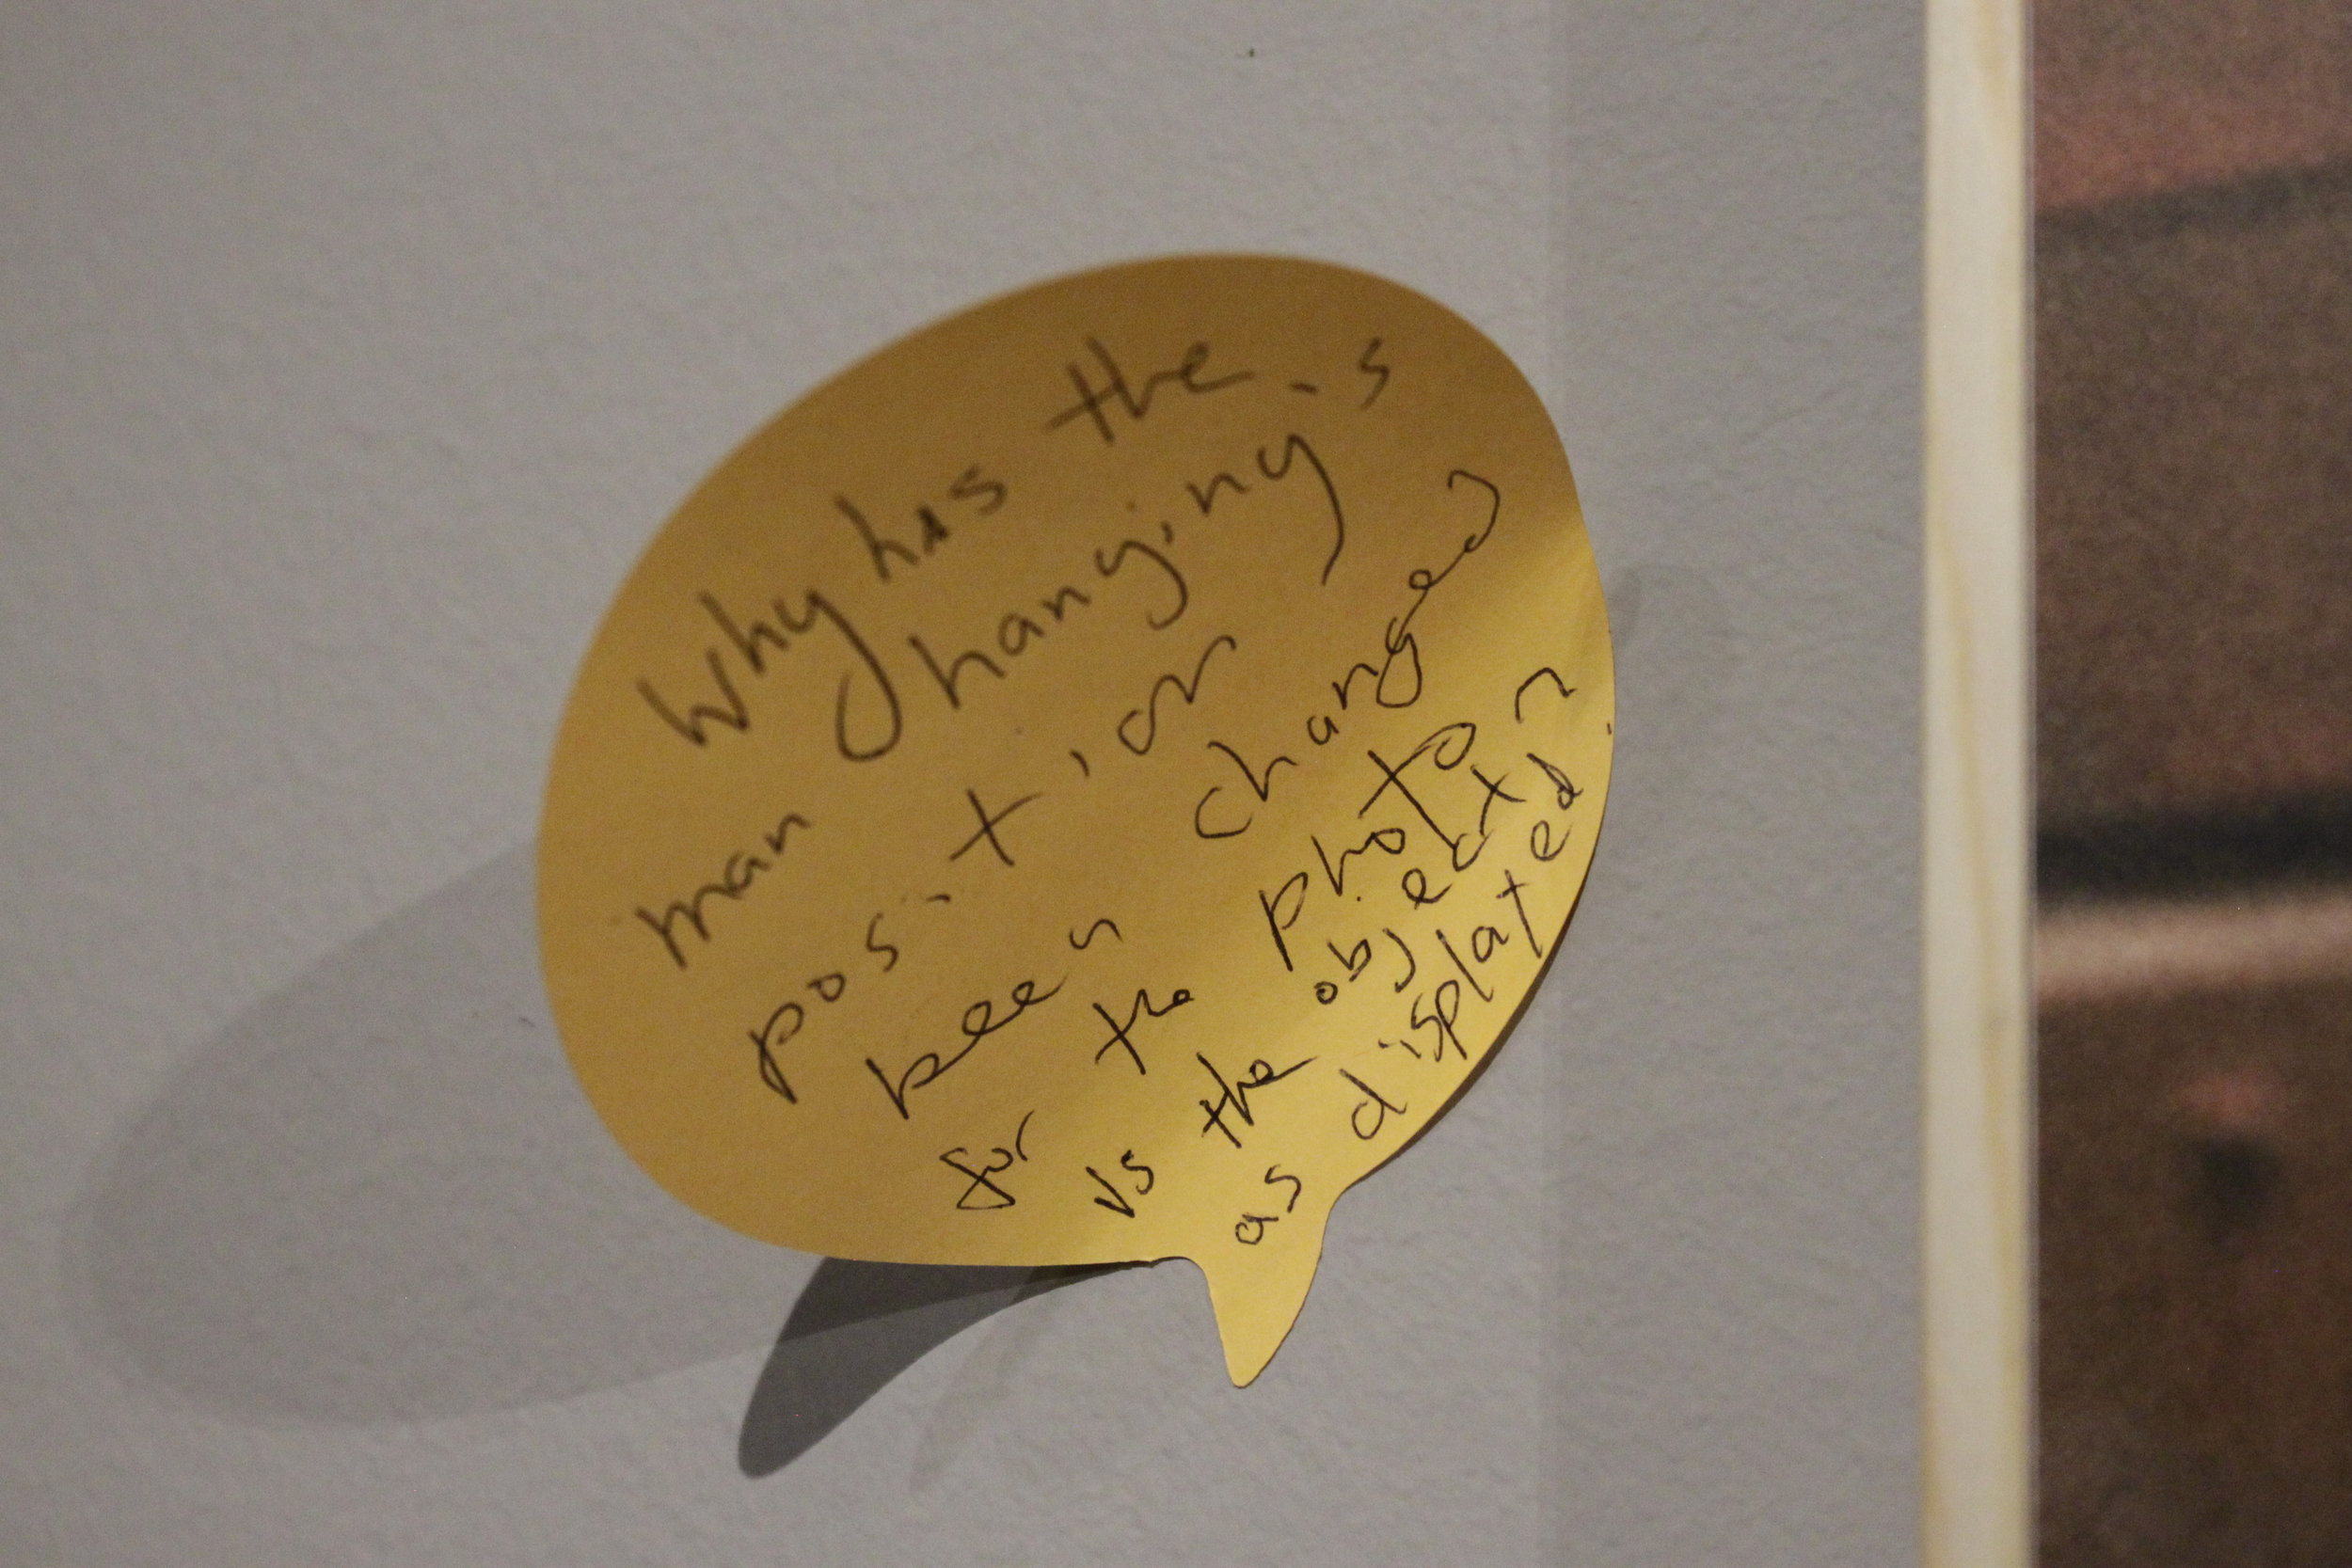 Why has the
man hanging's
position
been changed
for the photo
vs the object
as displayed?